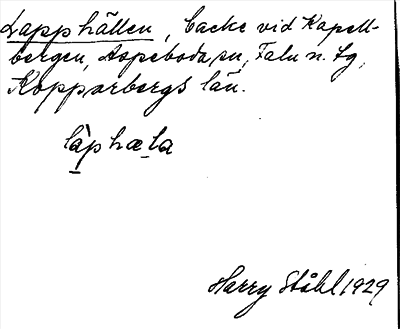 Lapphällen, backe vid Kapell-
bergen, Aspeboda sn, Falu n. tg,
Kopparbergs län.
làphæla
Harry Ståhl 1929